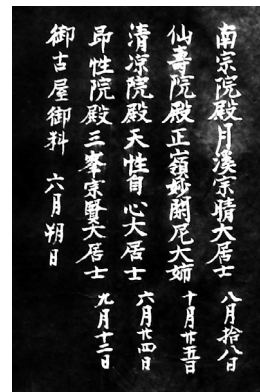 南宗院殿月溪宗晴大居士 八月拾八日
仙壽院殿正嶺妙關尼大姉 十月廿五日
清凉院殿天性自心大居士 六月廿四日
昂性院殿三峯宗賢大居士 九月十二日
御古屋御料 六月朔日